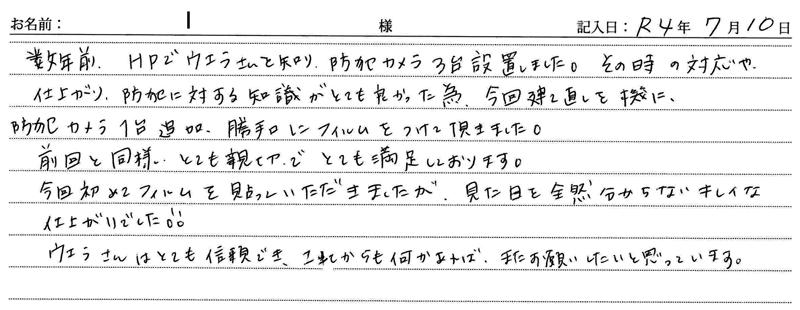 お名前： 様 記入日：R4年 7月10日
数年前、HPでウエラさんを知り、防犯カメラ3台設置しました。その時の対応や
仕上がり、防犯に対する知識がとても良かった為、今回建て直しを機に、
防犯カメラ1台追加、勝手口にフィルムをつけて頂きました。
前回と同様、とても親切で とても満足しております。
今回初めてフィルムを貼っていただきましたが、見た目も全然分からないキレイな
仕上がりでした
ウエラさんはとても信頼でき、これからも何かあれば、またお願いしたいと思っています。